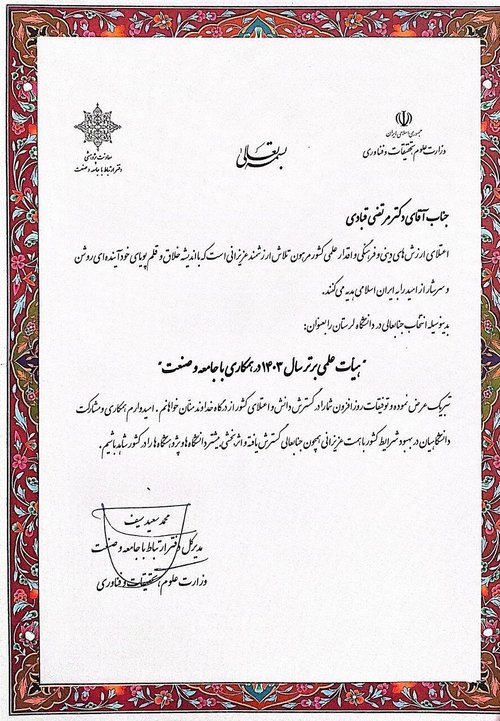 جمهوری اسلامی ایران
وزارت علوم، تحقیقات و فناوری
بسمه تعالی
معاونت پژوهشی
دفتر ارتباط با جامعه و صنعت
جناب آقای دکتر مرتضی قبادی
اعتلای ارزش های دینی و فرهنگی و اقتدار علمی کشور مرهون تلاش ارزشمند عزیزانی است که با اندیشه خلاق و قلم پویای خود آینده ای روشن
و سرشار از امید را به ایران اسلامی هدیه می کنند.
بدینوسیله انتخاب جنابعالی در دانشگاه لرستان را بعنوان:
"هیأت علمی برتر سال ۱۴۰۳ در همکاری با جامعه و صنعت"
تبریک عرض نموده و توفیقات روز افزون شما را در گسترش دانش و اعتلای کشور از درگاه خداوند منان خواهانم. امیدوارم همکاری و مشارکت
دانشگاهیان در بهبود شرایط کشور با همت عزیزانی همچون جنابعالی گسترش یافته و اثربخشی بیشتر دانشگاه ها و پژوهشگاه ها را در کشور شاهد باشیم.
محمد سعید سیف
مدیر کل دفتر ارتباط با جامعه و صنعت
وزارت علوم، تحقیقات و فناوری